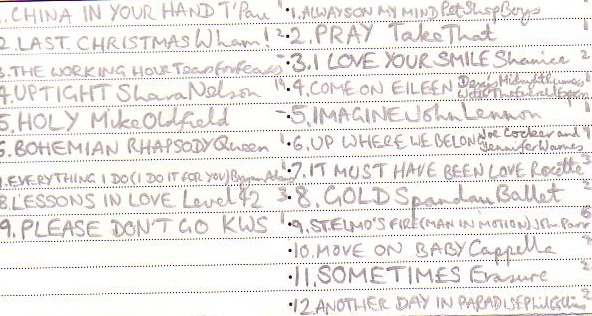 1. CHINA IN YOUR HAND T'Pau 1
2. LAST CHRISTMAS Wham! 2
3. THE WORKING HOUR Tears for fears
4. UPTIGHT Shara Nelson
5. HOLY Mike Oldfield
6. BOHEMIAN RHAPSODY Queen 1
7. EVERYTHING I DO (I DO IT FOR YOU) Bryan Adams
8. LESSONS IN LOVE Level 42 3
9. PLEASE DON'T GO KWS 1
•1. ALWAYS ON MY MIND Pet Shop Boys
•2. PRAY Take That 1
•3. I LOVE YOUR SMILE Shanice 2
•4. COME ON EILEEN Dexys Midnight Runners
•5. IMAGINE John Lennon 1
•6. UP WHERE WE BELONG Joe Cocker and Jennifer Warnes
•7. IT MUST HAVE BEEN LOVE Roxette 3
•8. GOLD Spandau Ballet 2
•9. STELMO'S FIRE (MAN IN MOTION) John Parr 6
•10. MOVE ON BABY Cappella
•11. SOMETIMES Erasure 2
•12. ANOTHER DAY IN PARADISE Phil Collins 2